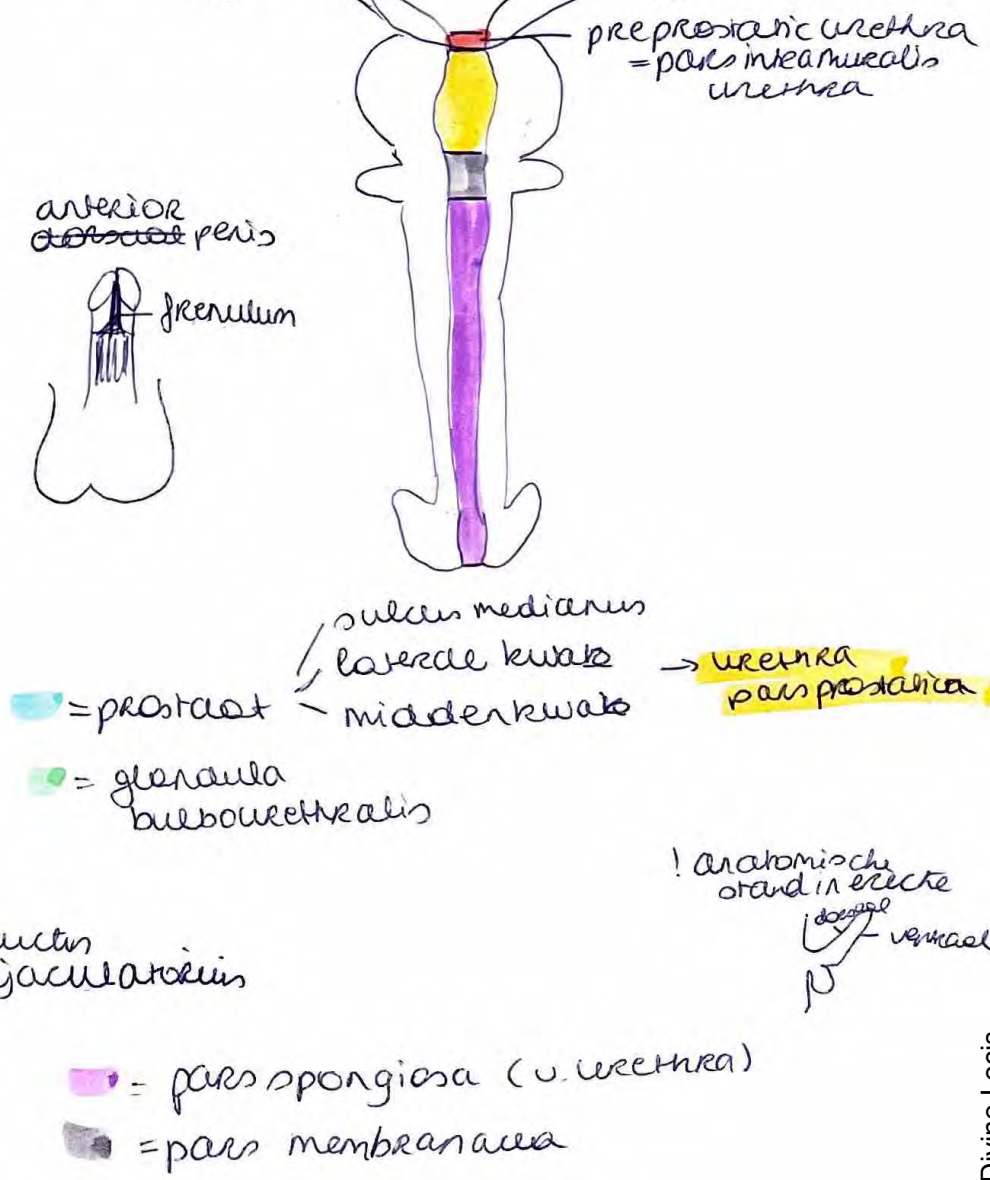 preprostatic urethra
= pars intramuralis
urethra
anterior
dorsaal penis
frenulum
sulcus medianus
laterale kwab
→ urethra
pars prostatica
= prostaat
middenkwab
= glandula
bulbourethralis
! anatomische
stand in erectie
dorsaal
ventraal
uctus
jaculatorius
= pars spongiosa (v. urethra)
= pars membranacea